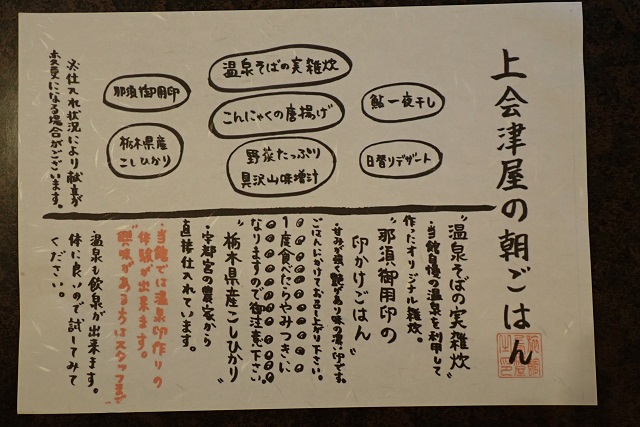 上会津屋の朝ごはん
鮎一夜干し
日替りデザート
温泉そばの実雑炊
こんにゃくの唐揚げ
野菜たっぷり
具沢山味噌汁
那須御用卵
栃木県産
こしひかり
※仕入れ状況により献立が
変更になる場合がございます。
"温泉そばの実雑炊"
・当館自慢の温泉を利用して
作ったオリジナル雑炊。
"那須御用卵の
卵かけごはん"
・甘みが強く艶があり味の濃い卵です。
ごはんにかけてお召し上がり下さい。
1度食べたらやみつきに
なりますので御注意下さい。
"栃木県産こしひかり"
・宇都宮の農家から
直接仕入れています。
・当館では温泉卵作りの
体験が出来ます。
興味がある方はスタッフまで
・温泉も飲泉が出来ます。
体に良いので試してみて
ください。